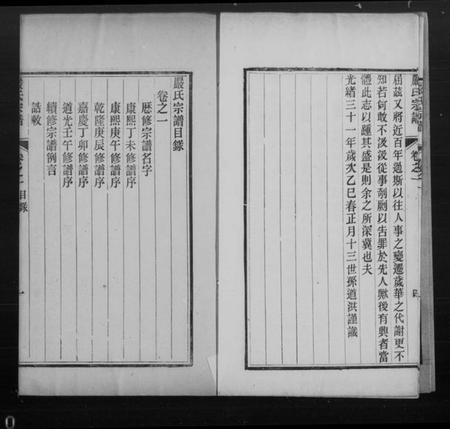 屆茲又將近百年過斯以往人事之變遷歲華之代謝更不
知若何敢不汲汲從事剞劂以告罪於先人歟後有興者當
體此志以踵其盛是則余之所深冀也夫
光緒三十一年歲次乙巳春正月十三世孫道洪謹識
嚴氏宗譜
卷之一
嚴氏宗譜目錄
卷之一
歷修宗譜名字
康熙丁未修譜序
康熙庚午修譜序
乾隆庚辰修譜序
嘉慶丁卯修譜序
道光壬午修譜序
續修宗譜例言
誥敕
嚴氏宗譜
卷之一 目錄
一